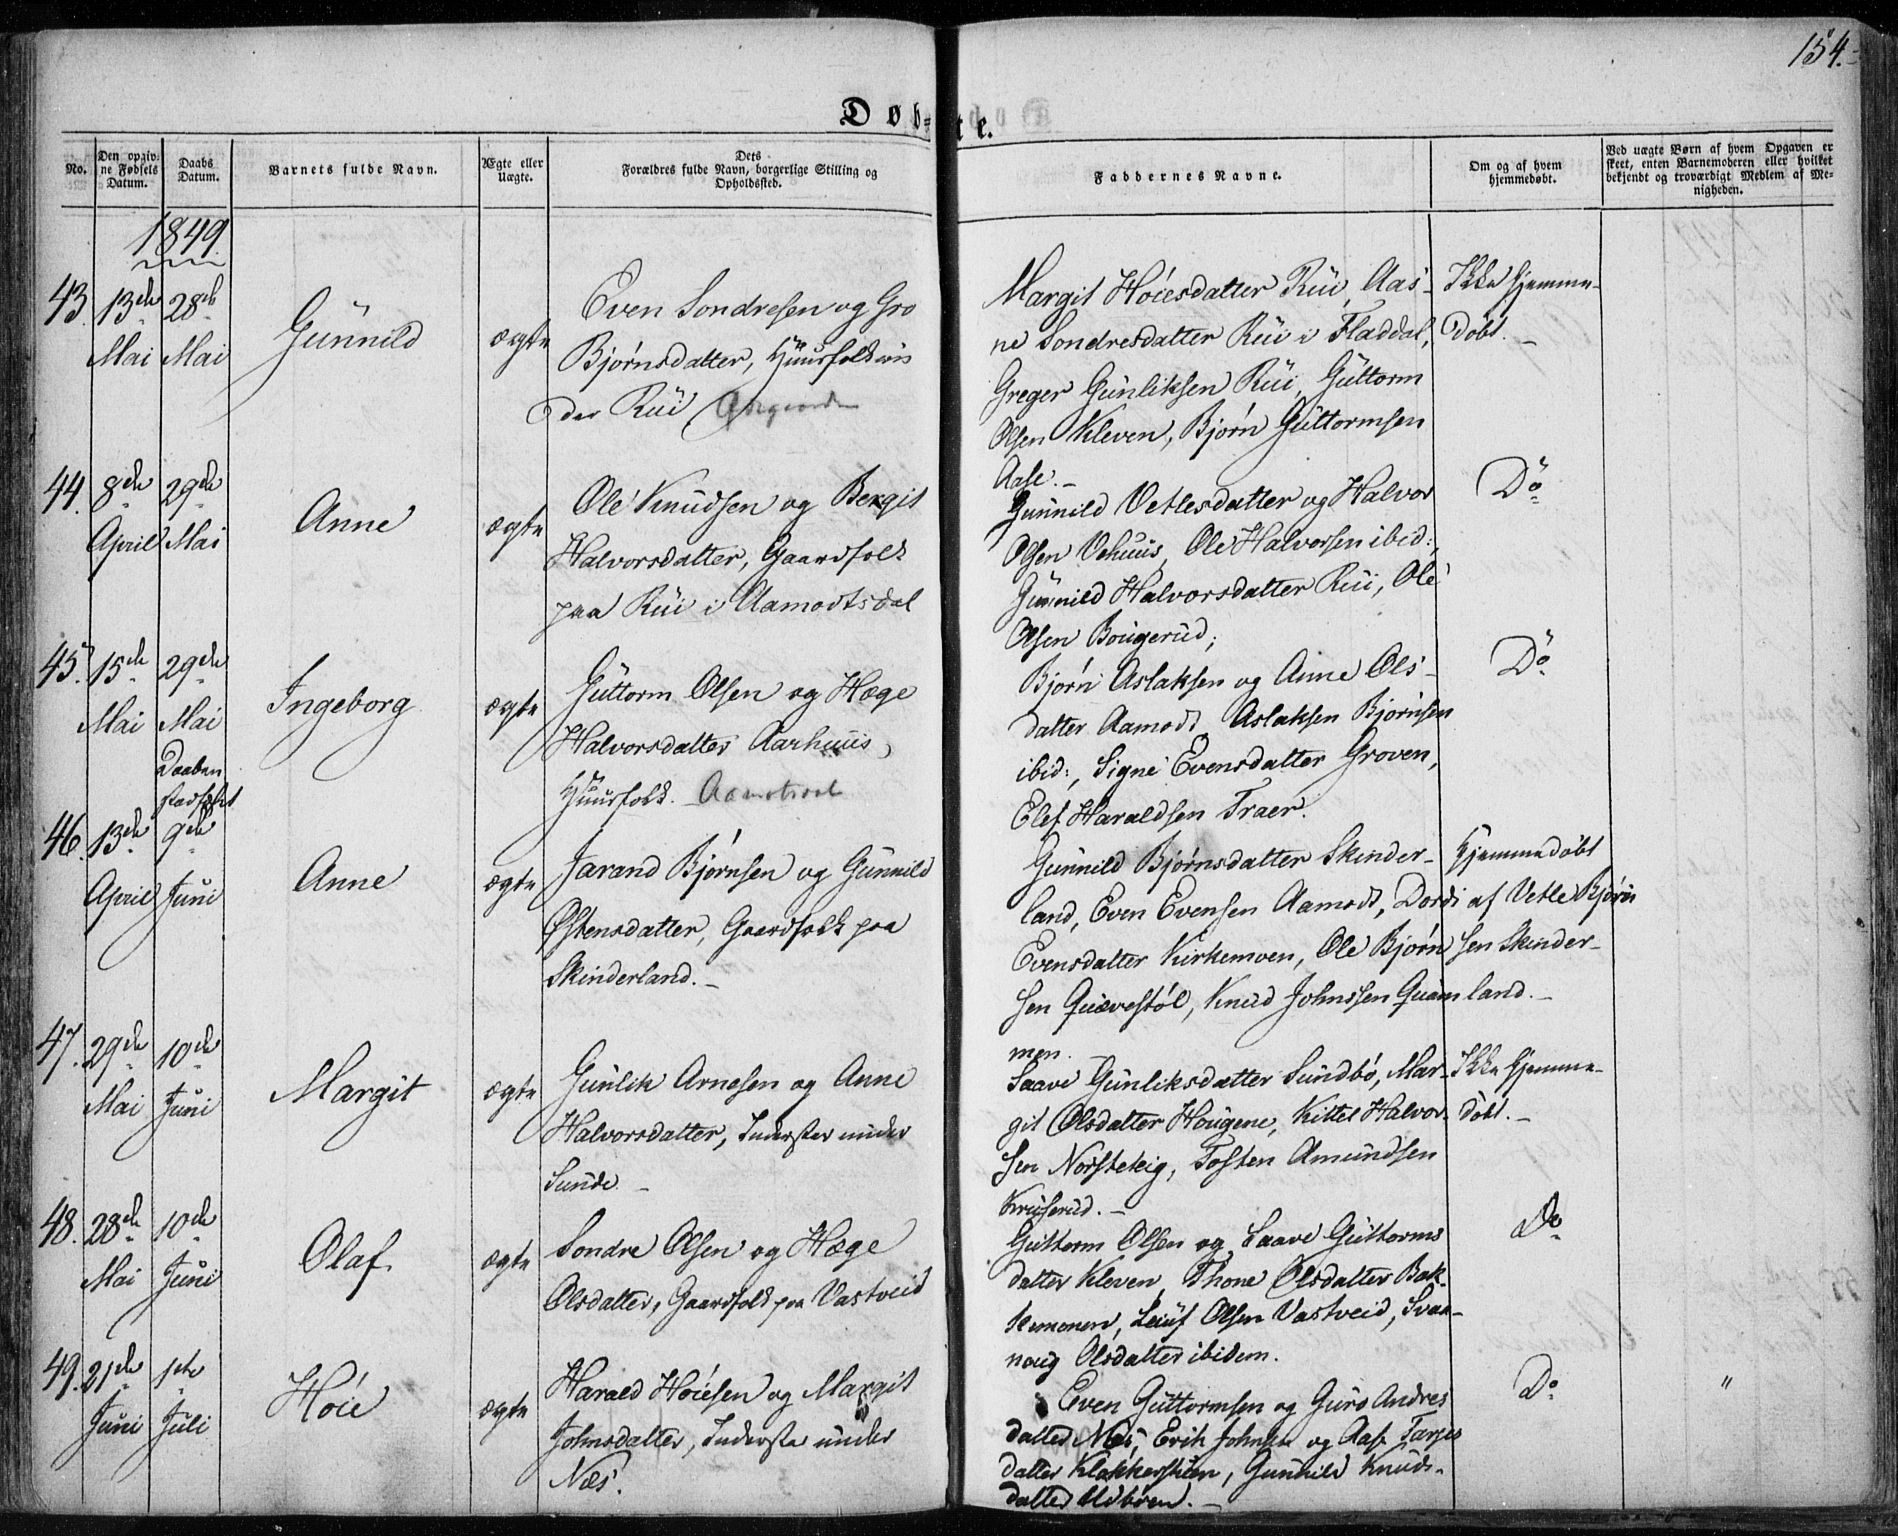 154.
Døb= te.
No.
Den opgiv=
ne Fødsels
Datum.
Daabs
Datum.
Barnets fulde Navn.
Ægte eller
Uægte.
Dets
Forældres fulde Navn, borgerlige Stilling og
Opholdssted.
Faddernes Navne.
Om og af hvem
hjemmedøbt.
Ved uægte Børn af hvem Opgaven er
skeet, enten Barnemoderen eller hvilket
bekjendt og troværdigt Medlem af Me=
nigheden.
1849.
43.
13de
Mai
28de
Mai
Günnild
ægte
Even Sondresen og Gro
Bjørnsdatter, Huusfolk ün
der Rüi
Margit Hóiesdatter Rüi, Aas-
ne Sondresdatter Rüi i Fladdal,
Greger Günliksen Rüi, Güttorm
Olsen Kleven, Bjørn Güttormsen
Aase.-
Ikke hjemme-
döbt.-
44.
8de
April
29de
Mai
Anne
ægte
Ole Knüdsen og Bergit
Halvorsdatter, Gaardfolk
paa Rüi i Aamodtsdal
Günnild Vetlesdatter og Halvor
Olsen Vehuus, Ole Halvorsen ibid:,
Günnild Halvorsdatter Rüi, Ole
Olsen Bougerüd;
Do
45.
15de
Mai
29de
Mai
Ingeborg
ægte
Güttorm Olsen og Hæge
Halvorsdatter Aarhuus,
Huusfolk.
Bjørn Aslaksen og Anne Ols-
datter Aamodt, Aslaksen Bjørnsen
ibid:, Signe Evensdatter Groven,
Elef Haraldsen Traer.
Do
Daaben
stadfæstet
46.
13de
April
9de
Juni
Anne
ægte
Jarand Bjørnsen og Günnild
Østensdatter, Gaardfolk paa
Skinderland.-
Günnild Bjørnsdatter Skinder-
land, Even Evensen Aamodt, Dordi
Evensdatter Kirkemoen, Ole Bjørn
sen Quævestöl, Knud Johnssen Quam
men.
Hjemmedöbt
af Vetle Bjørn
sen Skinder-
land.-
47.
29de
Mai
10de
Juni
Margit
ægte
Günlik Arnesen og Anne
Halvorsdatter, Inderster under
Sunde.-
Saave Günliksdatter Sundbö, Mar-
git Olsdatter Hougene, Kittel Halvor-
sen Norsteteig, Tosten Amundsen
Kruserüd.-
Ikke hjemme-
döbt.-
48.
28de
Mai
10de
Juni
Olaf.
ægte
Sondre Olsen og Hæge
Olsdatter, Gaardfolk paa Vastveid
Güttorm Olsen og Saave Güttorms
datter Kleven, Thone Olsdatter Bak-
kemoen, Leiuf Olsen Vastveid, Svan-
noug Olsdatter ibidem.
Do
49.
21de
Juni
1ste
Juli
Höie
ægte
Harald Höiesen og Margit
Johnsdatter, Inderste under
Næs.
Even Güttormsen og Guro Andres
datter Næs, Erik Johnsen og Aase Tarjes
datter Klokkerstuen, Gunhild Knuds-
datter Udböen.-
Do
"